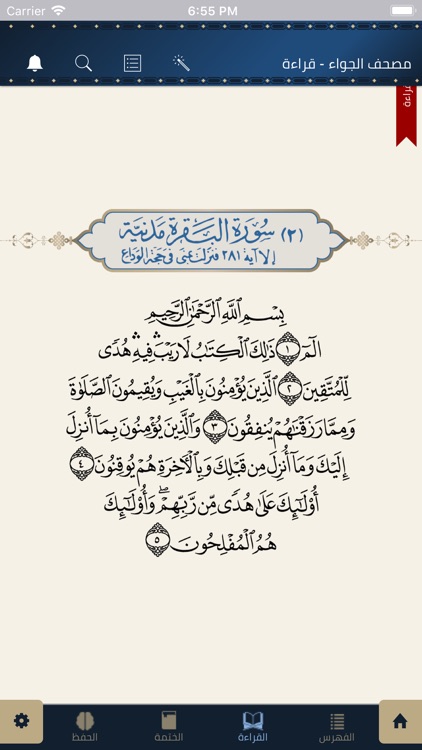 Carrier 6:55 PM
مصحف الجواء - قراءة
(٢) سُورَةُ البَقَرَةِ مَدَنِيَّة
إلا آية ٢٨١ فنزلت بمنى في حجة الوداع
بِسْمِ ٱللَّهِ ٱلرَّحْمَٰنِ ٱلرَّحِيمِ
الٓمٓ ١ ذَٰلِكَ ٱلْكِتَٰبُ لَا رَيْبَ ۛ فِيهِ ۛ هُدًى
لِّلْمُتَّقِينَ ٢ ٱلَّذِينَ يُؤْمِنُونَ بِٱلْغَيْبِ وَيُقِيمُونَ ٱلصَّلَوٰةَ
وَمِمَّا رَزَقْنَٰهُمْ يُنفِقُونَ ٣ وَٱلَّذِينَ يُؤْمِنُونَ بِمَآ أُنزِلَ
إِلَيْكَ وَمَآ أُنزِلَ مِن قَبْلِكَ وَبِٱلْءَاخِرَةِ هُمْ يُوقِنُونَ ٤
أُو۟لَٰٓئِكَ عَلَىٰ هُدًى مِّن رَّبِّهِمْ ۖ وَأُو۟لَٰٓئِكَ
هُمُ ٱلْمُفْلِحُونَ ٥
الفهرس
القراءة
الختمة
الحفظ